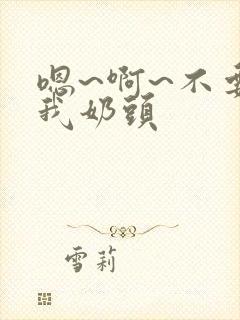 嗯~啊~不要
我奶頭
雪莉